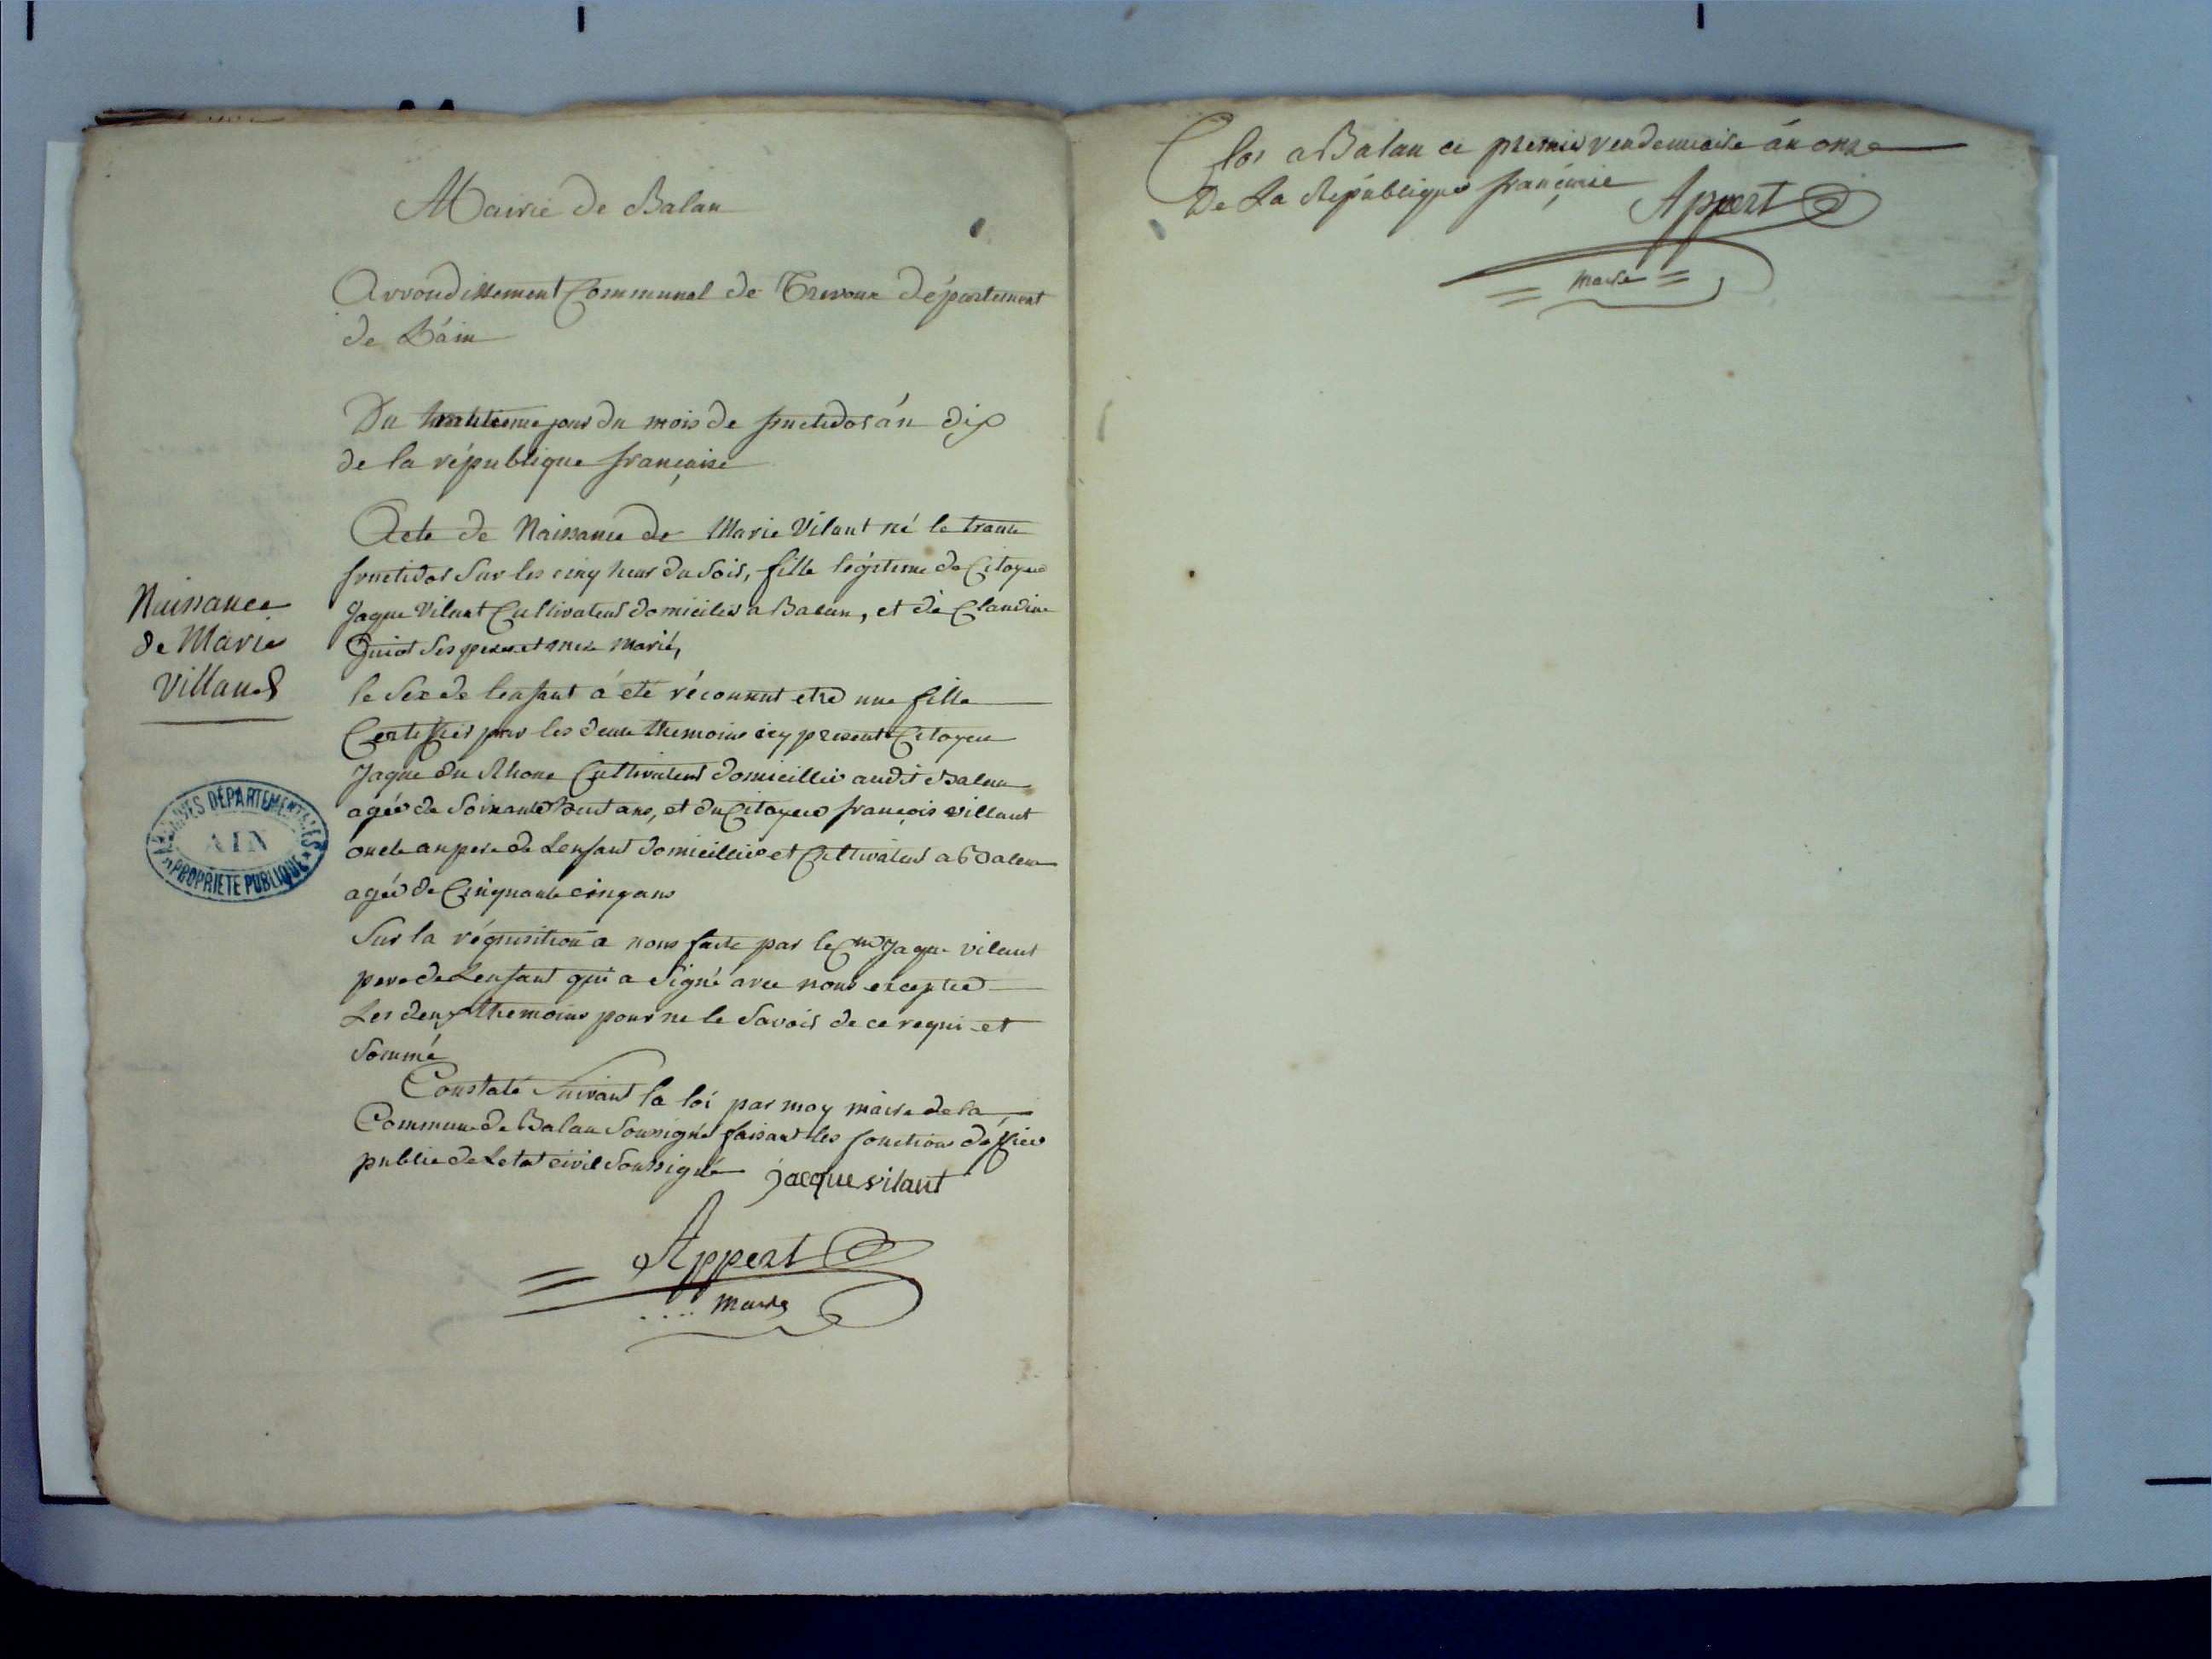 Mairie de Balan
Arrondissement Communal de Trevoux département
de L'áin
Du trentieme jour du mois de fructidor án dix
de la république française
Acte de Naissance de Marie Vilant né le trante
fructidor Sur les cinq heur du Soir, fille légitime de Citoyen
Jaque Vilant Cultivateur domicilié a Balan, et de Claudine
Guiot Ses pere et mere marié,
le Sexe de lenfant á eté réconnut etre une fille
Certiffier par les deux themoins icy present Citoyen
Jaque du Rhone Cultivateur domicillié audit Balan
agée de Soixante huit ans, et du Citoyen françois villant
oncle au pere de Lenfant domicillié et Cultivateur a Balan
agée de Cinquante cinq ans
Sur la réquisition a nous faite par le Cen Jaque vilant
pere de Lenfant qui a Signé avec nous excepted
Les deux themoins pour ne le Savoir de ce requi et
Sommé
Constaté Suivant la loi par moy maire de la
Commune de Balan Soussigné faisant les fonctions d'officier
public de Letat civil Soussigné jacque vilant
Appert
maire
Naissance
de Marie
Villand
ARCHIVES DÉPARTEMENTALES
AIN
PROPRIÉTÉ PUBLIQUE
Clos a Balan ce premier vendemiaire án onze
De La République françaisse Appert
maire